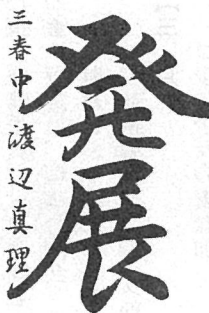 発展
三春中 渡辺真理